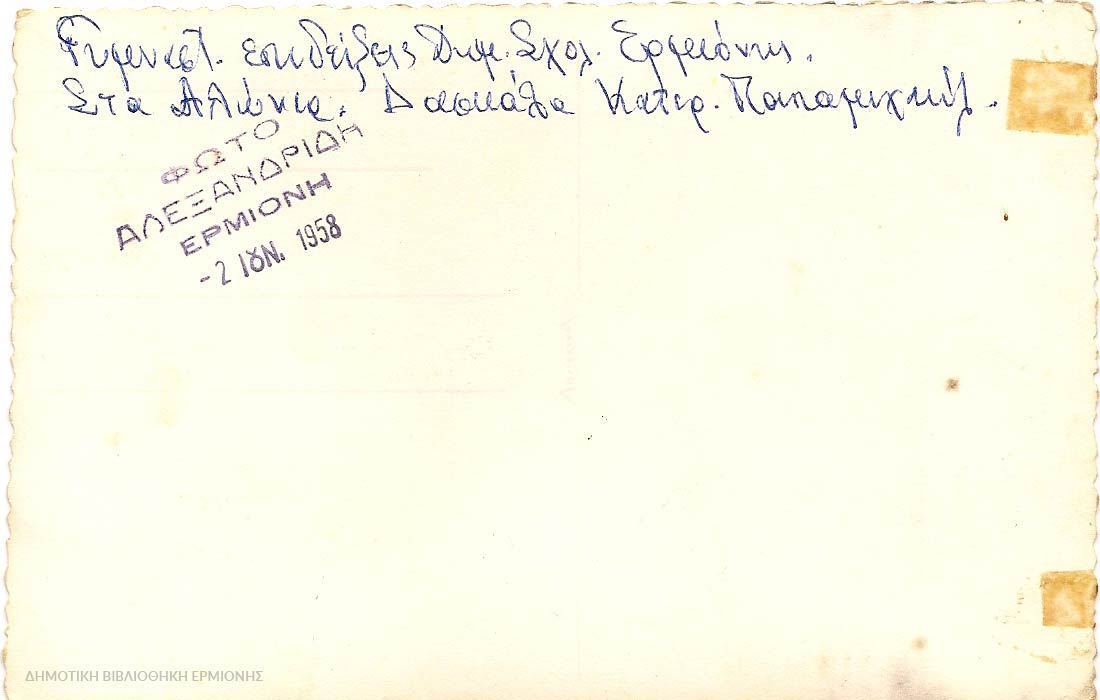 Γυμναστ. επιδείξεις Δημ. Σχολ. Ερμιόνης.
Στα Αλώνια. Δασκάλα Κατερ. Παπαμιχαήλ.
ΦΩΤΟ
ΑΛΕΞΑΝΔΡΙΔΗ
ΕΡΜΙΟΝΗ
-2 ΙΟΥΝ. 1958
ΔΗΜΟΤΙΚΗ ΒΙΒΛΙΟΘΗΚΗ ΕΡΜΙΟΝΗΣ